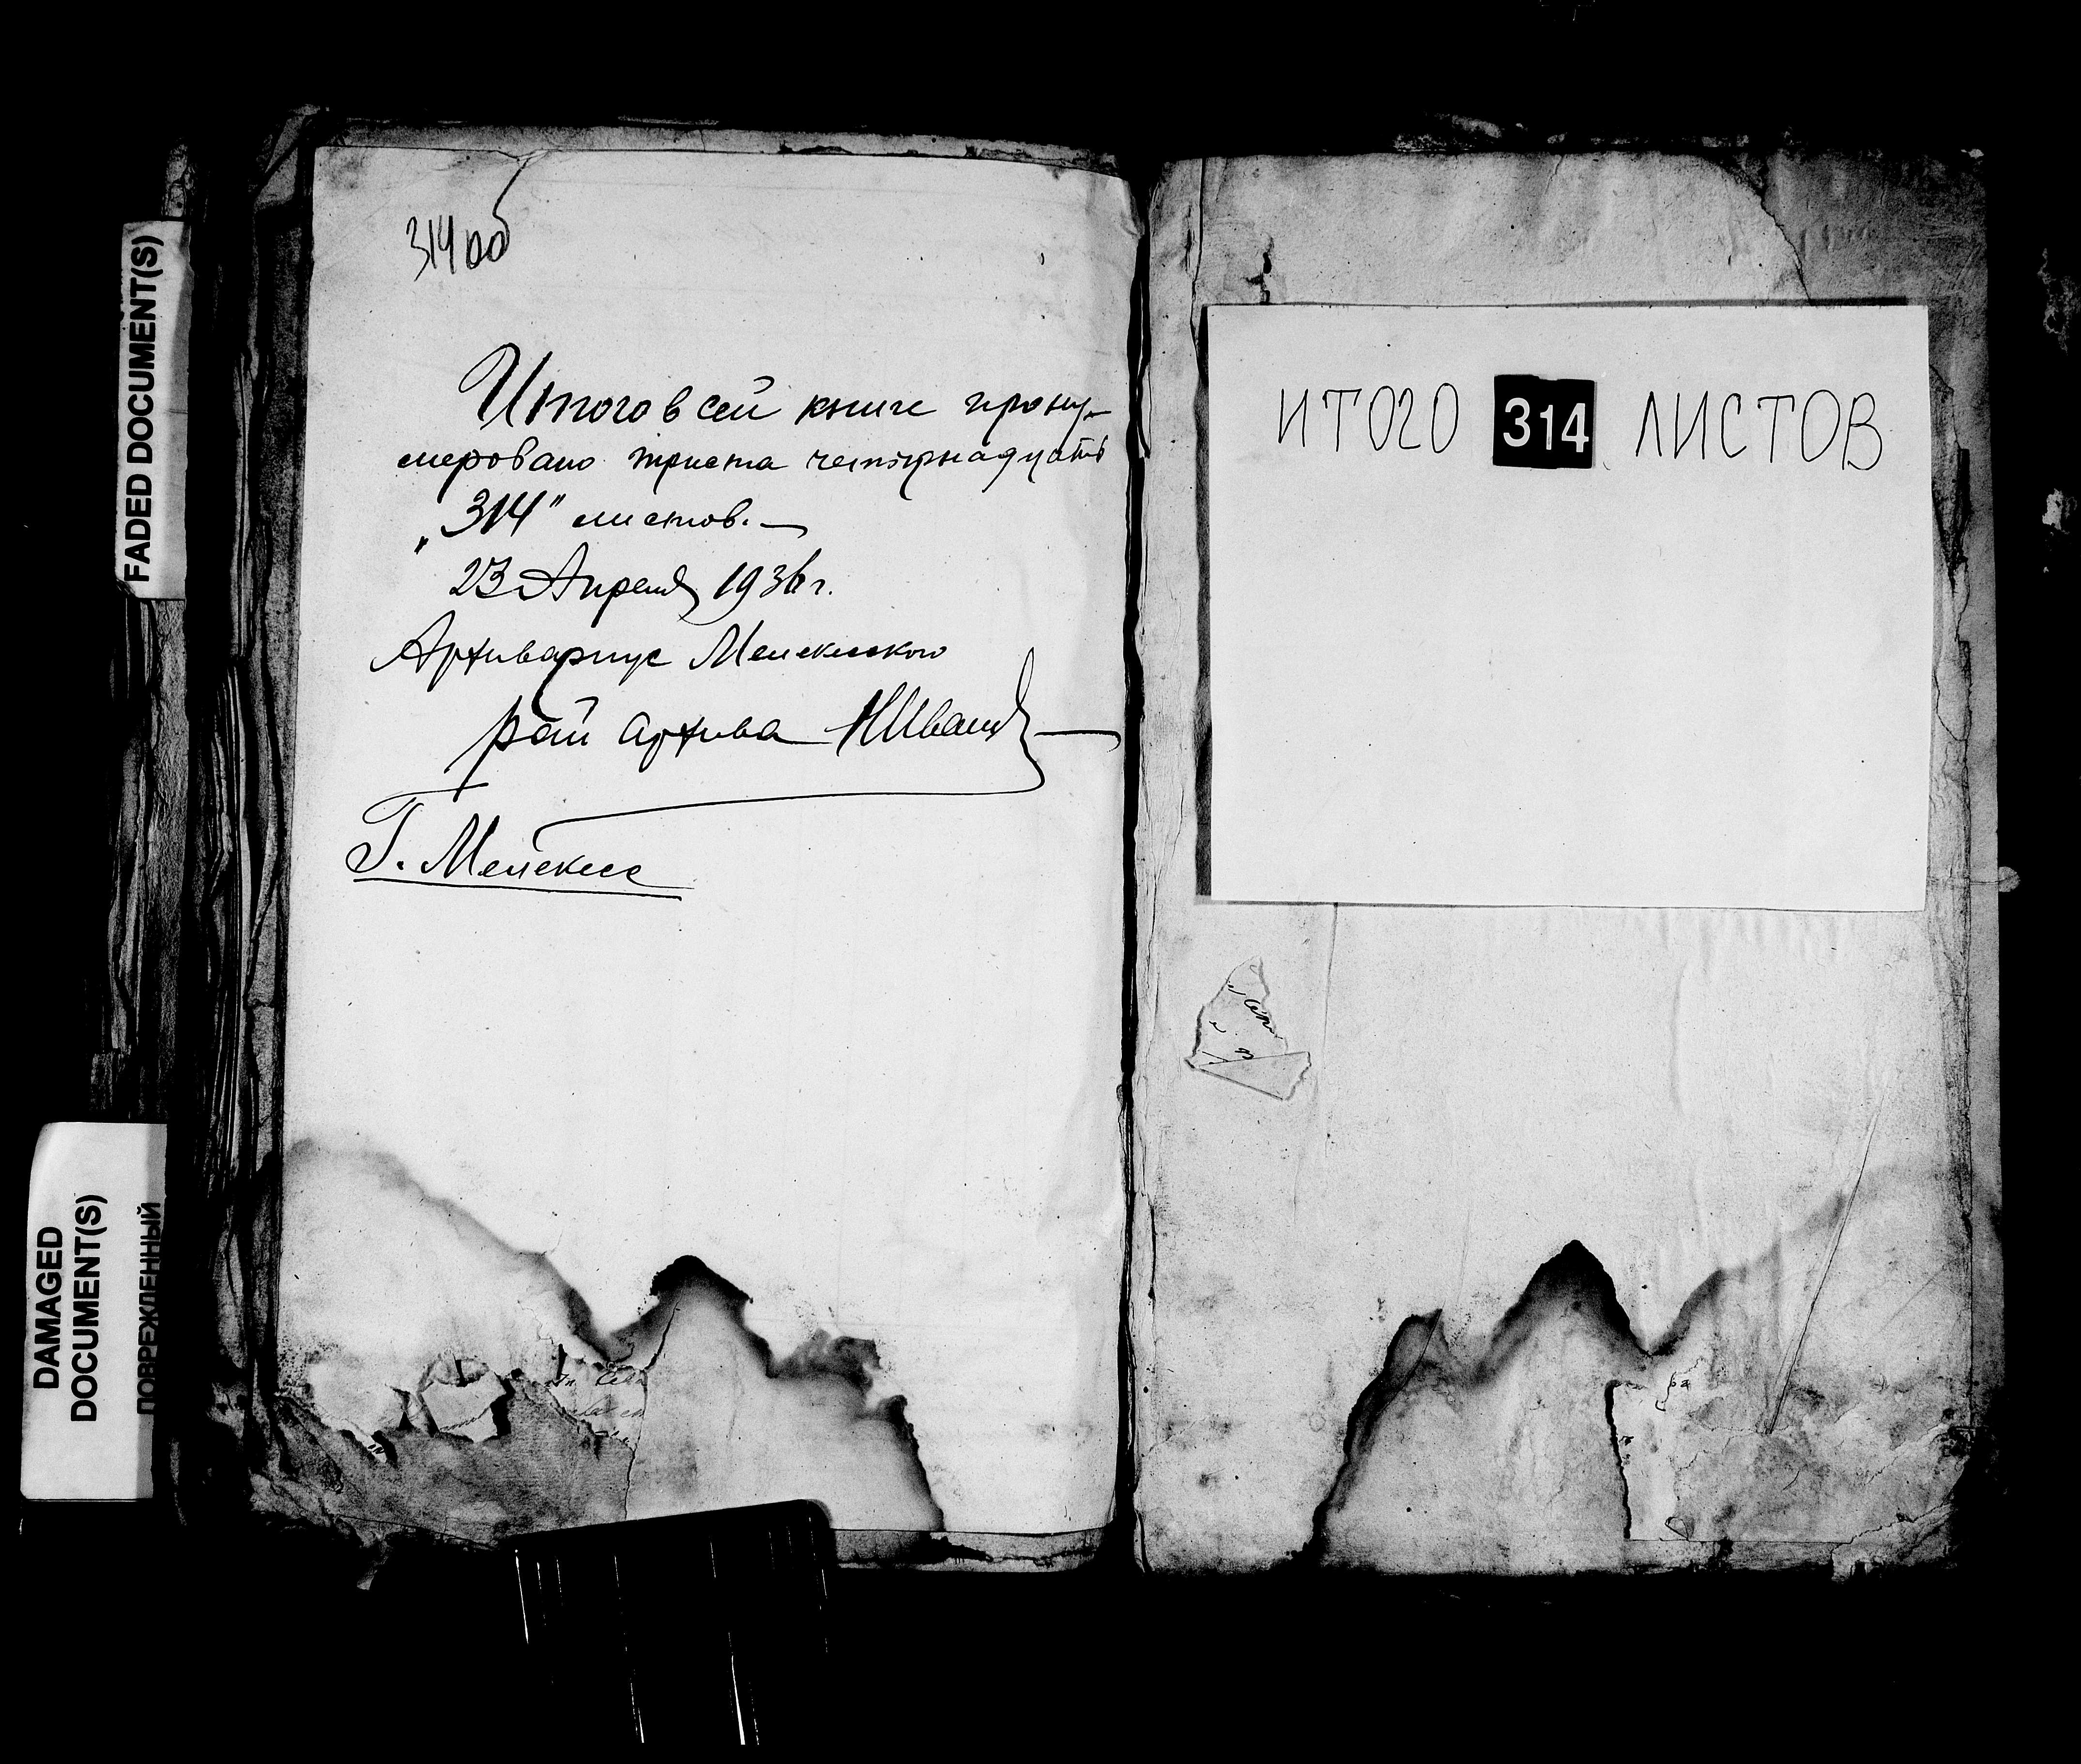 FADED DOCUMENT(S)
DAMAGED
DOCUMENT(S)
ПОВРЕЖДЕННЫЙ
314 об
Итого в сей книге прону-
меровано триста четырнадцать
„314" листов.—
23 Апреля 1936 г.
Архивариус Мелекесского
рай архива НИванов
Г. Мелекесс
ИТОГО 314 ЛИСТОВ